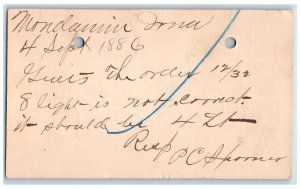 Mondamin Iowa
4 Sept 1886
Gents The order 12/32
8 light is not correct.
it should be 4 Lt
Resp
P C Spooner